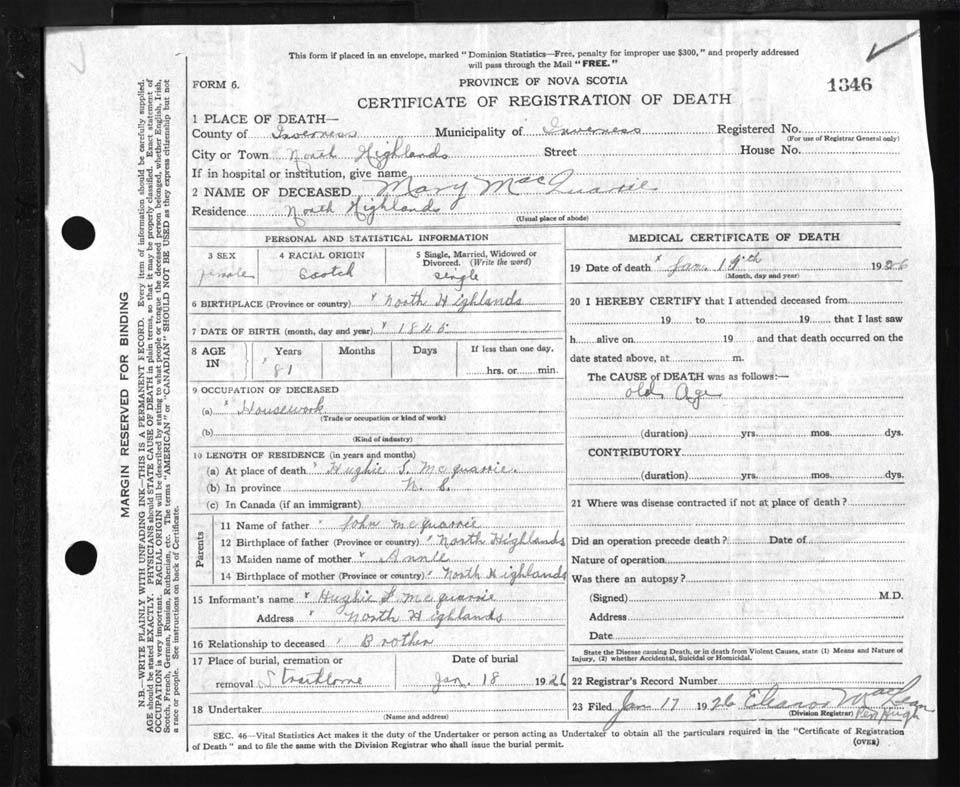 This form if placed in an envelope, marked "Dominion Statistics—Free, penalty for improper use $300," and properly addressed
will pass through the Mail "FREE."
FORM 6.
PROVINCE OF NOVA SCOTIA
1346
CERTIFICATE OF REGISTRATION OF DEATH
1 PLACE OF DEATH—
County of Inverness Municipality of Inverness Registered No.
(For use of Registrar General only)
City or Town North Highlands Street House No.
If in hospital or institution, give name
2 NAME OF DECEASED Mary MacQuarrie
Residence North Highlands
(Usual place of abode)
PERSONAL AND STATISTICAL INFORMATION
3 SEX
female
4 RACIAL ORIGIN
Scotch
5 Single, Married, Widowed or
Divorced. (Write the word)
single
6 BIRTHPLACE (Province or country) North Highlands
7 DATE OF BIRTH (month, day and year) 1845
8 AGE
IN
Years
81
Months
Days
If less than one day,
hrs. or min.
9 OCCUPATION OF DECEASED
(a) Housework
(Trade or occupation or kind of work)
(b)
(Kind of industry)
10 LENGTH OF RESIDENCE (in years and months)
(a) At place of death Hughie S. McQuarrie.
(b) In province N. S.
(c) In Canada (if an immigrant)
Parents
11 Name of father John McQuarrie
12 Birthplace of father (Province or country) North Highlands
13 Maiden name of mother Annie
14 Birthplace of mother (Province or country) North Highlands
15 Informant's name Hughie McQuarrie
Address North Highlands
16 Relationship to deceased Brother
17 Place of burial, cremation or
removal Strathlorne
Date of burial
Jan. 18 1926
18 Undertaker
(Name and address)
MEDICAL CERTIFICATE OF DEATH
19 Date of death Jan. 1926
(Month, day and year)
20 I HEREBY CERTIFY that I attended deceased from
19 to 19 that I last saw
h alive on 19 and that death occurred on the
date stated above, at m.
The CAUSE of DEATH was as follows:—
old Age
(duration) yrs. mos. dys.
CONTRIBUTORY
(duration) yrs. mos. dys.
21 Where was disease contracted if not at place of death?
Did an operation precede death? Date of
Nature of operation
Was there an autopsy?
(Signed) M.D.
Address
Date
State the Disease causing Death, or in death from Violent Causes, state (1) Means and Nature of
Injury, (2) whether Accidental, Suicidal or Homicidal.
22 Registrar's Record Number
23 Filed Jan 17 1926 MacLean
(Division Registrar)
SEC. 46—Vital Statistics Act makes it the duty of the Undertaker or person acting as Undertaker to obtain all the particulars required in the "Certificate of Registration
of Death" and to file the same with the Division Registrar who shall issue the burial permit.
(OVER)
MARGIN RESERVED FOR BINDING
N.B.—WRITE PLAINLY WITH UNFADING INK—THIS IS A PERMANENT RECORD. Every item of information should be carefully supplied.
AGE should be stated EXACTLY. PHYSICIANS should STATE CAUSE OF DEATH in plain terms, so that it may be properly classified. Exact statement of
OCCUPATION is very important. RACIAL ORIGIN will be described by stating to what people or tongue the deceased person belonged, whether English, Irish,
Scotch, French, German, Russian, Ruthenian, etc. The terms "AMERICAN" or "CANADIAN" SHOULD NOT BE USED as they express citizenship but not
a race or people. See instructions on back of Certificate.